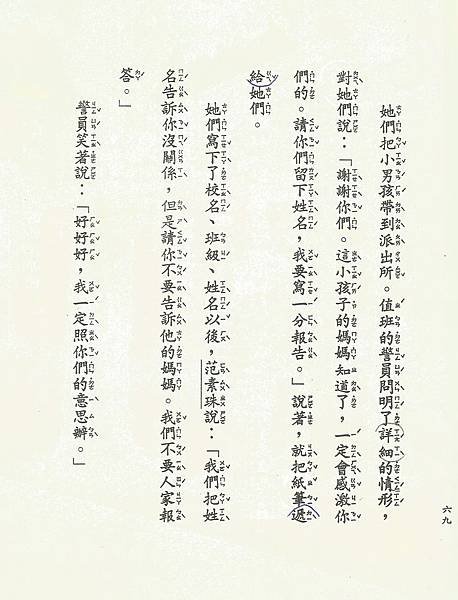 她們把小男孩帶到派出所。值班的警員問明了詳細的情形，
對她們說：「謝謝你們。這小孩子的媽媽知道了，一定會感激你
們的。請你們留下姓名，我要寫一分報告。」說著，就把紙筆遞
給她們。
她們寫下了校名、班級、姓名以後，范素珠說：「我們把姓
名告訴你沒關係，但是請你不要告訴他的媽媽。我們不要人家報
答。」
警員笑著說：「好好好，我一定照你們的意思辦。」
六九